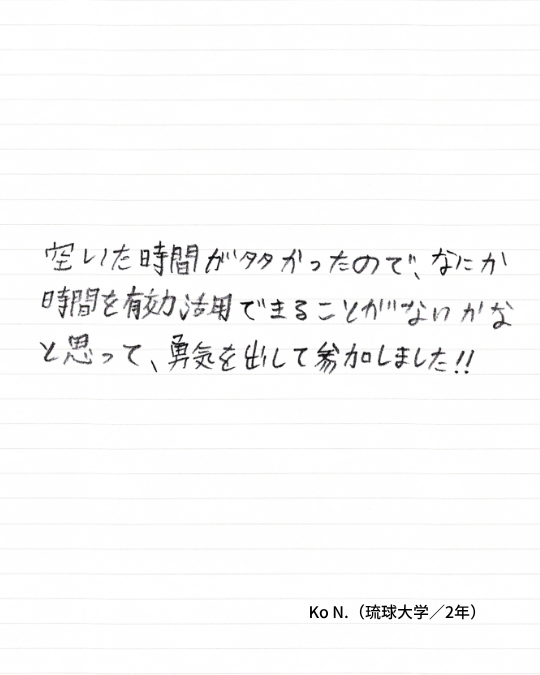 空いた時間が多かったので、なにか
時間を有効活用できることがないかな
と思って、勇気を出して参加しました!!
Ko N.（琉球大学／2年）